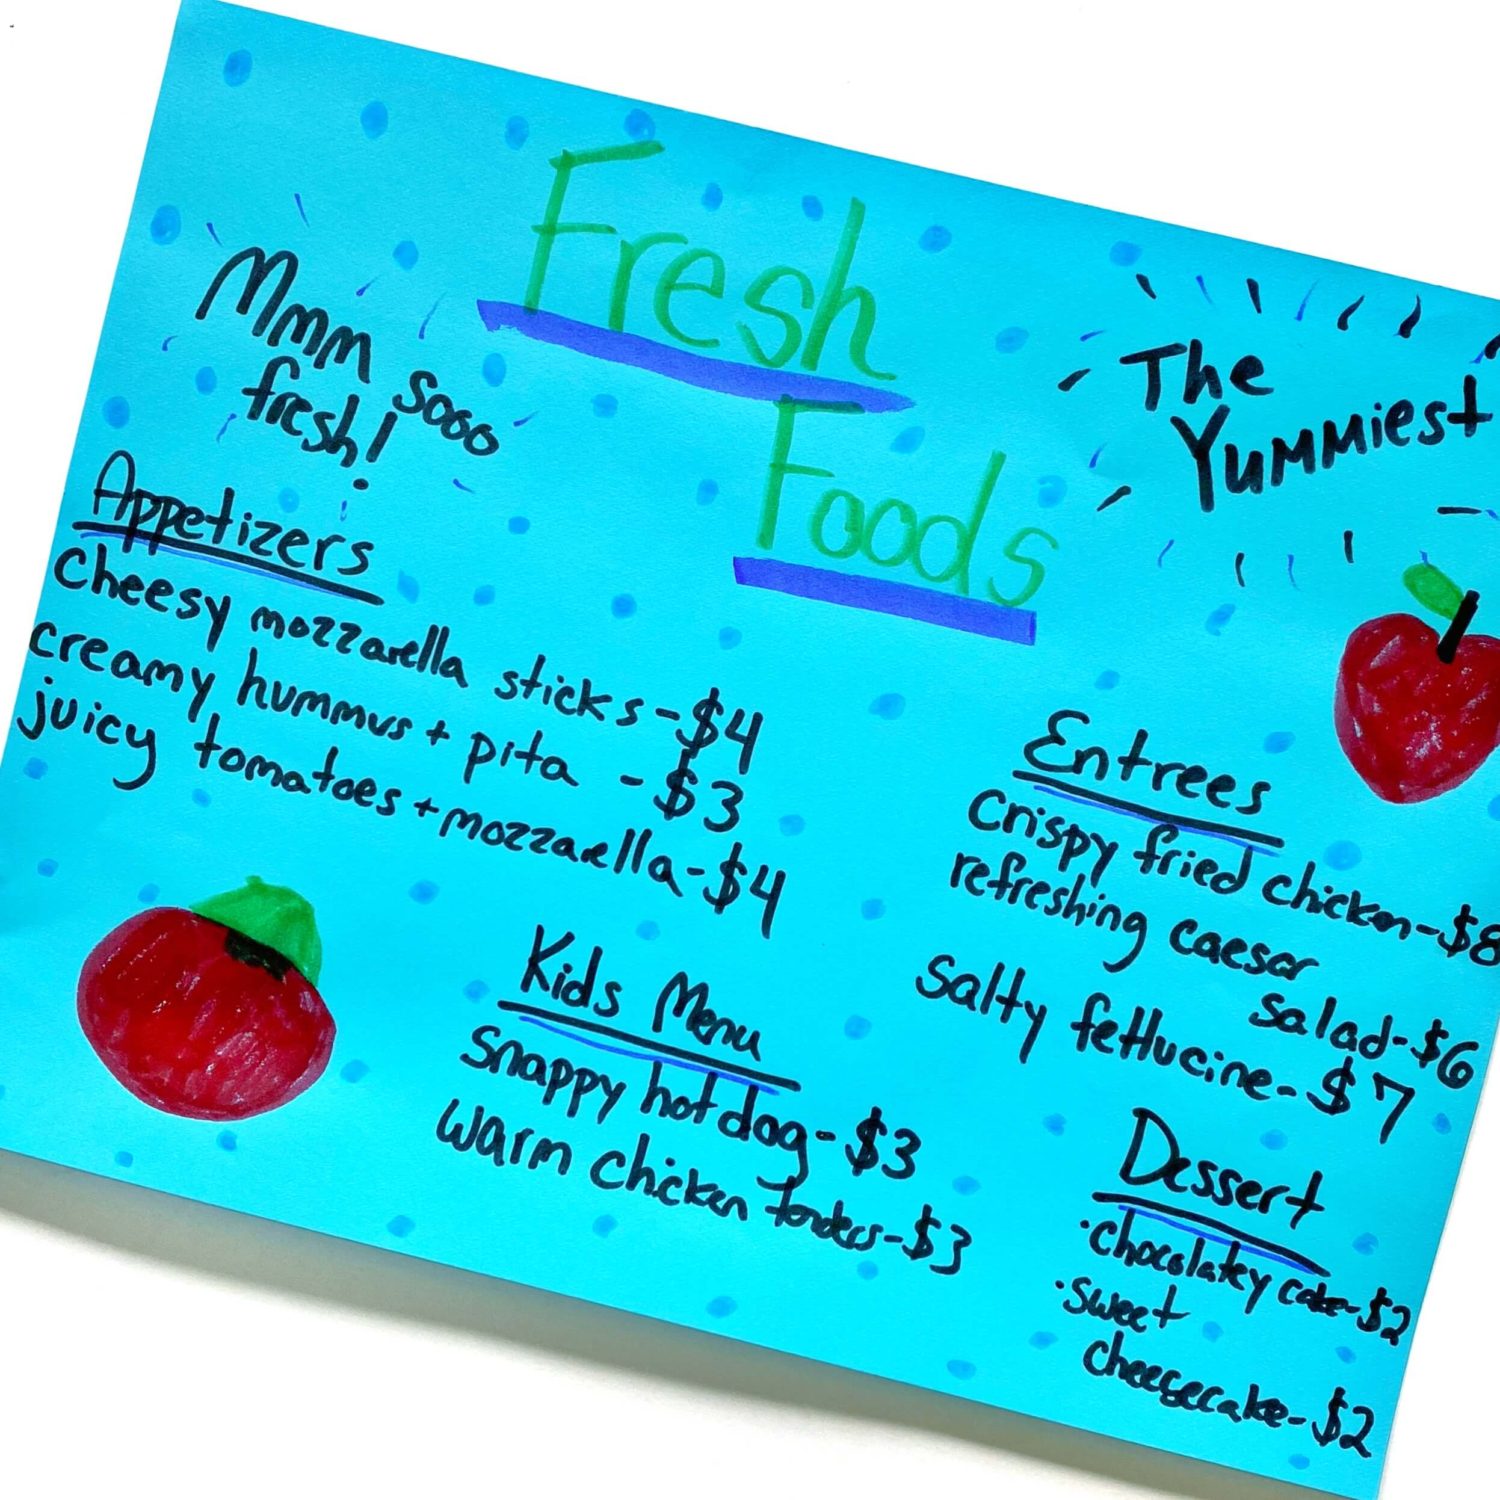 Fresh
Foods
Mmm sooo
fresh!
The
Yummiest
Appetizers
Cheesy mozzarella sticks - $4
creamy hummus + pita - $3
juicy tomatoes + mozzarella - $4
Kids Menu
Snappy hot dog - $3
warm chicken tenders - $3
Entrees
Crispy fried chicken - $8
refreshing caesar
salad - $6
Salty fettucine - $7
Dessert
• chocolatey cake - $2
• sweet
cheesecake - $2